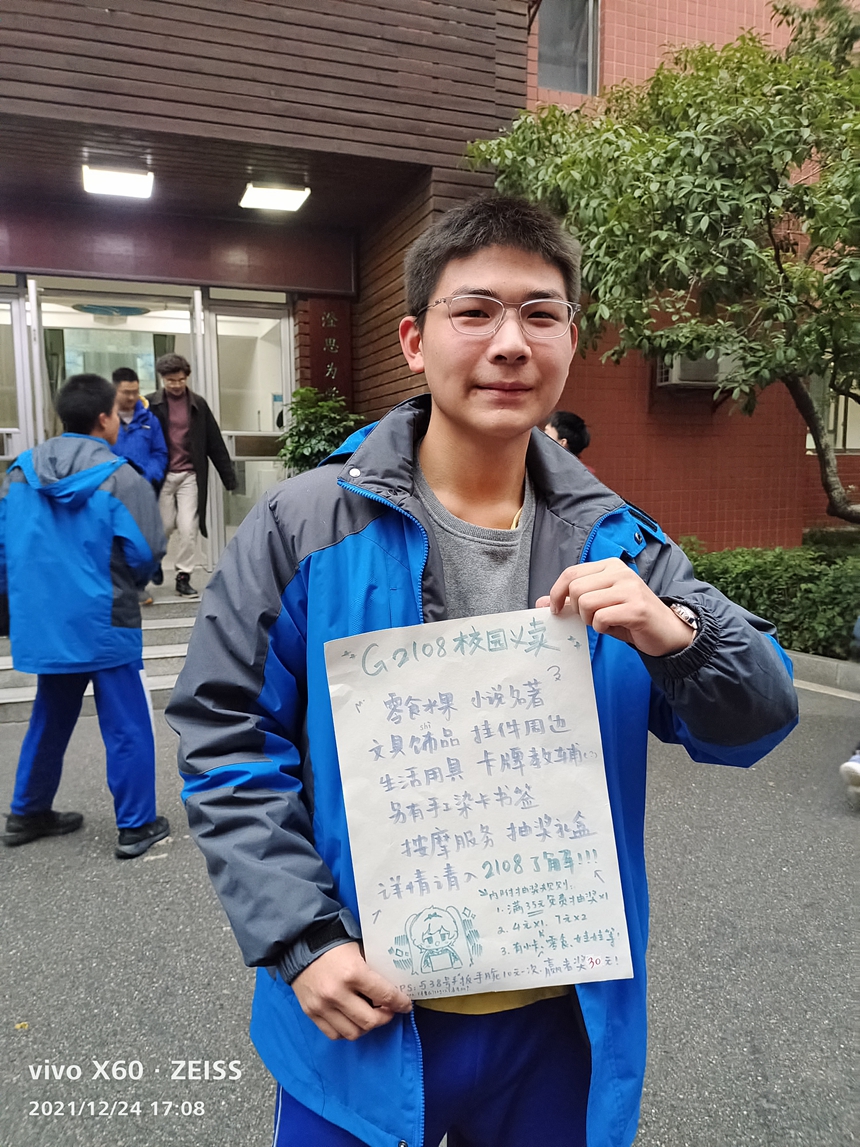 G2108校园义卖
零食水果 小说名著
shì
文具饰品 挂件周边
生活用具 卡牌教辅
另有手工染卡书签
按摩服务 抽奖礼盒
详情请入2108了解!!!
内附抽奖规则:
1. 满35元免费抽奖×1
2. 4元×1, 7元×2
3. 有小卡、零食、娃娃等!
PS: 538号扳手腕10元一次,赢者奖30元!
淦思为
vivo X60 · ZEISS
2021/12/24 17:08